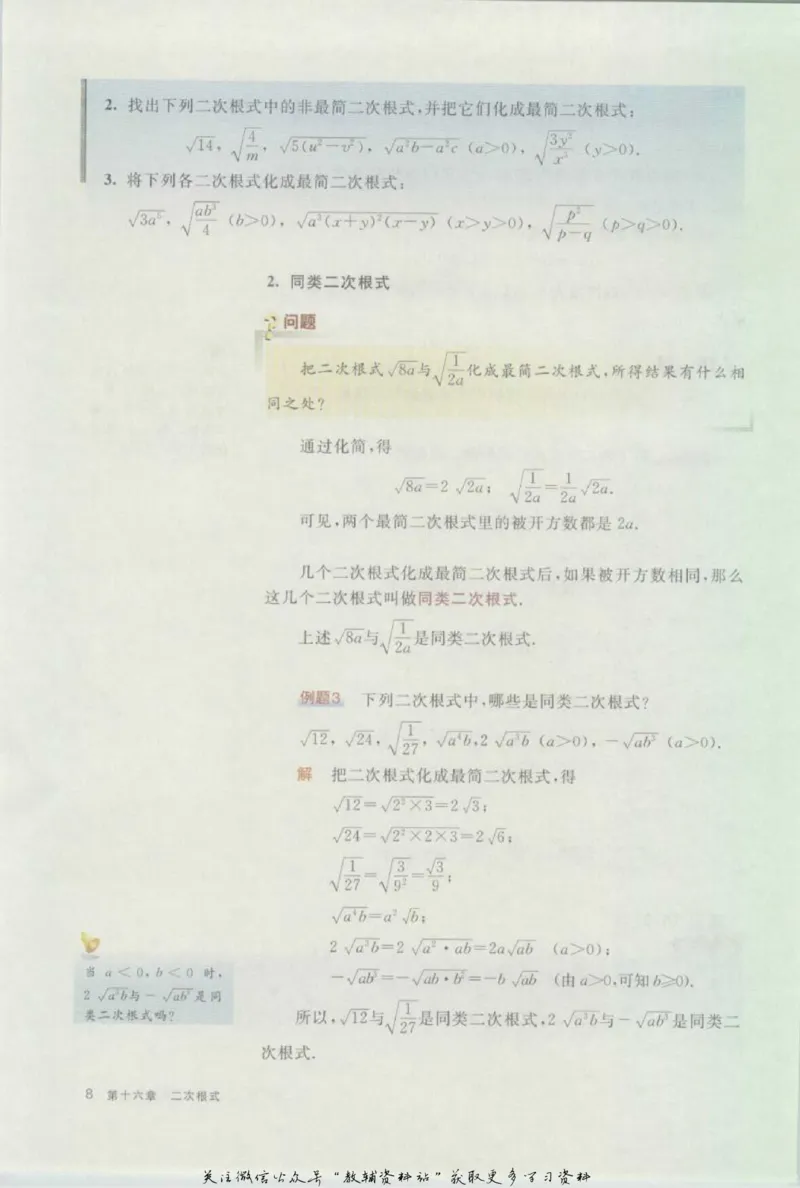 2. 找出下列二次根式中的非最简二次根式,并把它们化成最简二次根式:
√14, √(4/m), √(5(u²-v²)), √(a²b-a²c) (a>0), √(3y²/x⁵) (y>0).
3. 将下列各二次根式化成最简二次根式:
√(3a⁵), √(ab³/4) (b>0), √(a³(x+y)²(x-y)) (x>y>0), √(p²/(p-q)) (p>q>0).
2. 同类二次根式
问题
把二次根式√(8a)与√(1/2a)化成最简二次根式,所得结果有什么相
同之处?
通过化简,得
√(8a)=2√(2a); √(1/2a)=1/2a√(2a).
可见,两个最简二次根式里的被开方数都是 2a.
几个二次根式化成最简二次根式后,如果被开方数相同,那么
这几个二次根式叫做同类二次根式.
上述√(8a)与√(1/2a)是同类二次根式.
例题3 下列二次根式中,哪些是同类二次根式?
√12, √24, √(1/27), √(a⁴b), 2√(a³b) (a>0), -√(ab³) (a>0).
解 把二次根式化成最简二次根式,得
√12=√(2²×3)=2√3;
√24=√(2²×2×3)=2√6;
√(1/27)=√(3/9²)=√3/9;
√(a⁴b)=a²√b;
2√(a³b)=2√(a²·ab)=2a√(ab) (a>0);
-√(ab³)=-√(ab·b²)=-b√(ab) (由 a>0,可知 b≥0).
当 a<0, b<0 时,
2√(a³b)与-√(ab³)是同
类二次根式吗?
所以,√12与√(1/27)是同类二次根式,2√(a³b)与-√(ab³)是同类二
次根式.
8 第十六章 二次根式
关注微信公众号“教辅资料站”获取更多学习资料